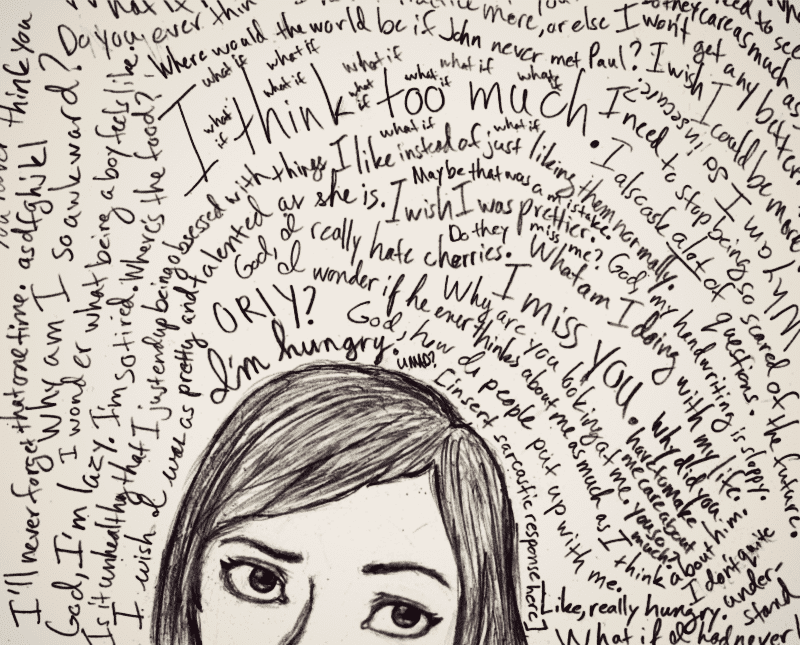 What if I
Do you ever think
practice more, or else I won't get any better
Where would the world be if John never met Paul? I wish I could be more
so they care as much as
need to see
what if what if what if what if what if what if
I think too much.
what if what if what if what if what if
I need to stop being so scared of the future.
Why am I so insecure?
I like instead of just liking them normally.
I also ask a lot of questions.
Maybe that was a mistake.
I wish I was prettier.
Do they miss me?
God, my handwriting is sloppy.
God, I really hate cherries.
What am I doing with my life.
I wonder if he ever thinks about me as much as I think about him.
I miss you.
Why did you have to make me care about you so much?
Why are you looking at me.
ORLY?
I'm hungry.
umad?
God, how do people put up with me.
[insert sarcastic response here]
Like, really hungry.
I don't quite understand
What if I had never
you never think you
I'll never forget that one time. asdfghjkl
God, Why am I so awkward?
I'm lazy. I wonder what being a boy feels like.
I'm so tired. Where's the food?
Is it unhealthy that I just end up being obsessed with things
I wish I was as pretty and talented as she is.